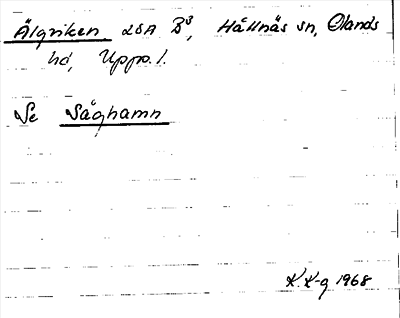 Älgviken LSA B³, Hållnäs sn, Olands
hd, Upps. l.
Se Såghamn
K. K-g 1968